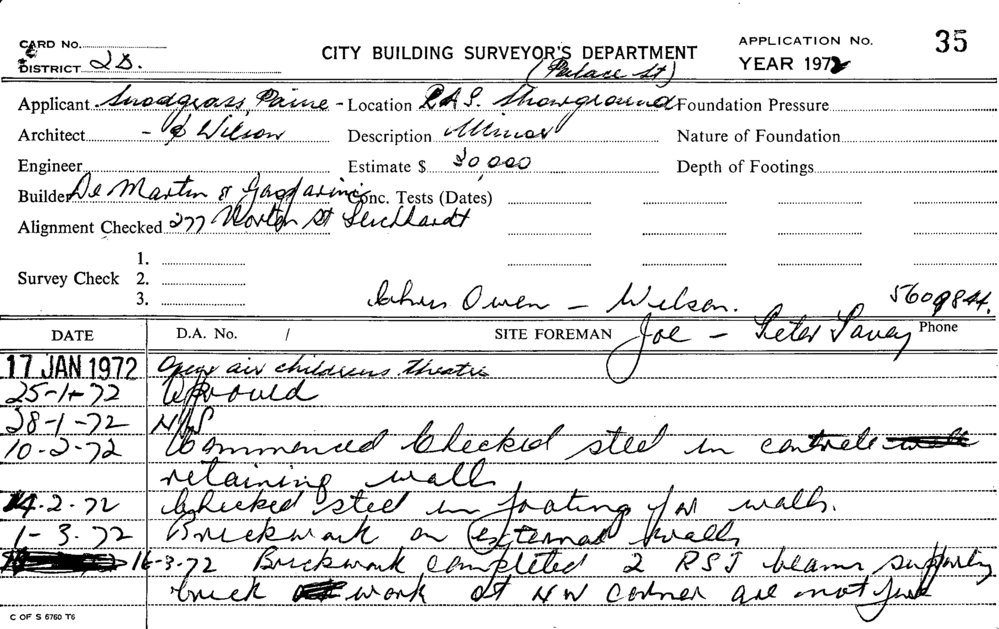 CARD No.
DISTRICT 2D.
CITY BUILDING SURVEYOR'S DEPARTMENT
APPLICATION No. 35
YEAR 1972
(Palace St)
Applicant Snodgrass, Paine - Location R.A.S. Showground Foundation Pressure
Architect - & Wilson Description Minor Nature of Foundation
Engineer Estimate $ 30,000 Depth of Footings
Builder De Martin & Gasparini Conc. Tests (Dates)
Alignment Checked 277 Norton St Leichhardt
Survey Check
1.
2.
3.
Chris Owen - Wilson. 5609844.
DATE D.A. No. / SITE FOREMAN Joe - Peter Phone
17 JAN 1972 Open air childrens theatre
25-1-72 Approved
28-1-72 N/S
10-2-72 Commenced Checked steel in concrete
retaining wall
14.2.72 Checked steel in footing for walls.
1-3.72 Brickwork on external walls
16-3-72 Brickwork completed 2 RSJ beams supporting
brick work at NW corner are not
C OF S 6760 T6